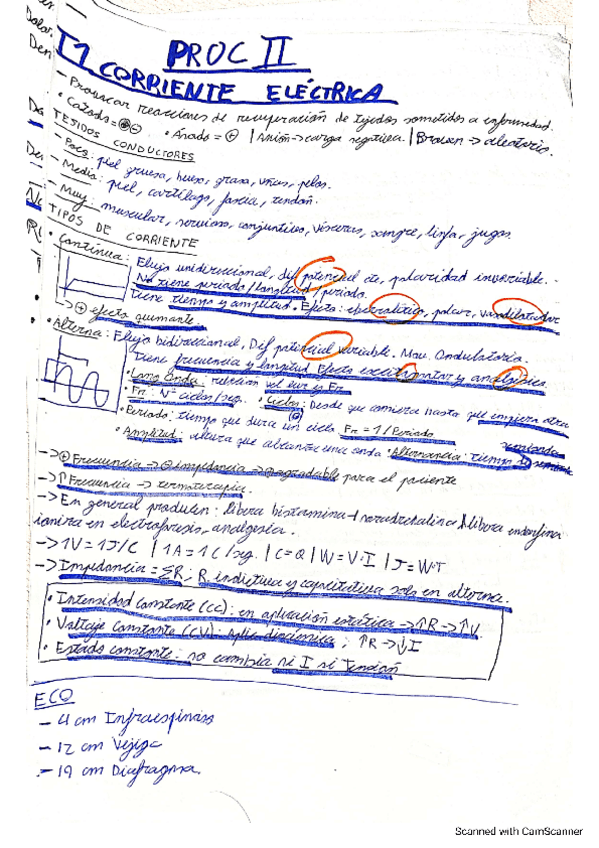 PROC II
T1 CORRIENTE ELÉCTRICA
- Provocar reacciones de recuperación de tejidos sometidos a enfermedad.
• Cátodo = ⊖ • Ánodo = ⊕ | Anión → carga negativa. | Brown → aleatorio.
TEJIDOS CONDUCTORES
- Poco: piel gruesa, hueso, grasa, uñas, pelos.
- Medio: piel, cartílago, fascia, tendón.
- Muy: muscular, nervioso, conjuntivo, vísceras, sangre, linfa, jugos.
TIPOS DE CORRIENTE
• Continua: Flujo unidireccional, dif potencial cte, polaridad invariable.
No tiene periodo/longitud/periodo.
Tiene tiempo y amplitud. Efecto: electrolítico, polar, vasodilatador
→ ⊕ efecto quemante.
• Alterna: Flujo bidireccional, Dif potencial variable. Mov. Ondulatorio.
Tiene frecuencia y longitud Efecto excitomotor y analgésico
• Long Onda: relación vel luz y Fr
• Fr: Nº ciclos/seg. • Ciclos: Desde que comienza hasta que empieza otra
• Periodo: tiempo que dura un ciclo Fr = 1/Periodo
• Amplitud: altura que alcanza una onda • Alternancia: tiempo
→ ⊕ Frecuencia → ⊖ impedancia → ⊕ agradable para el paciente
→ ↑Frecuencia → termoterapia.
→ En general producen: libera histamina noradrenalina libera endorfina
ioniza en electroforesis, analgesia.
→ 1V = 1J/C | 1A = 1C/seg. | C = Q | W = V·I | J = W·T
→ Impedancia = ΣR; R. inductiva y capacitativa solo en alterna.
• Intensidad Constante (CC): en aplicación estática → ↑R → ↑V.
• Voltaje Constante (CV): Aplic dinámica; ↑R → ↓I
• Estado constante: no cambia ni I ni Tensión
ECO
- 4 cm Infraespinoso
- 12 cm Vejiga
- 19 cm Diafragma.
Scanned with CamScanner